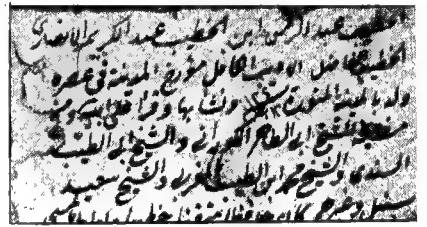 الخطيب عبد الرحمن ابن الخطيب عبد الكريم الانصاري
الخطيب الفاضل الاديب الكامل مؤرخ المدينة في عصره
ولد بالمدينة المنورة ونشا بها وقرا على
الشيخ ابي الطاهر الكوراني والشيخ ابي الطيب
السندي والشيخ محمد ابن الطيب المغربي والشيخ سعيد
سنبل وغيرهم